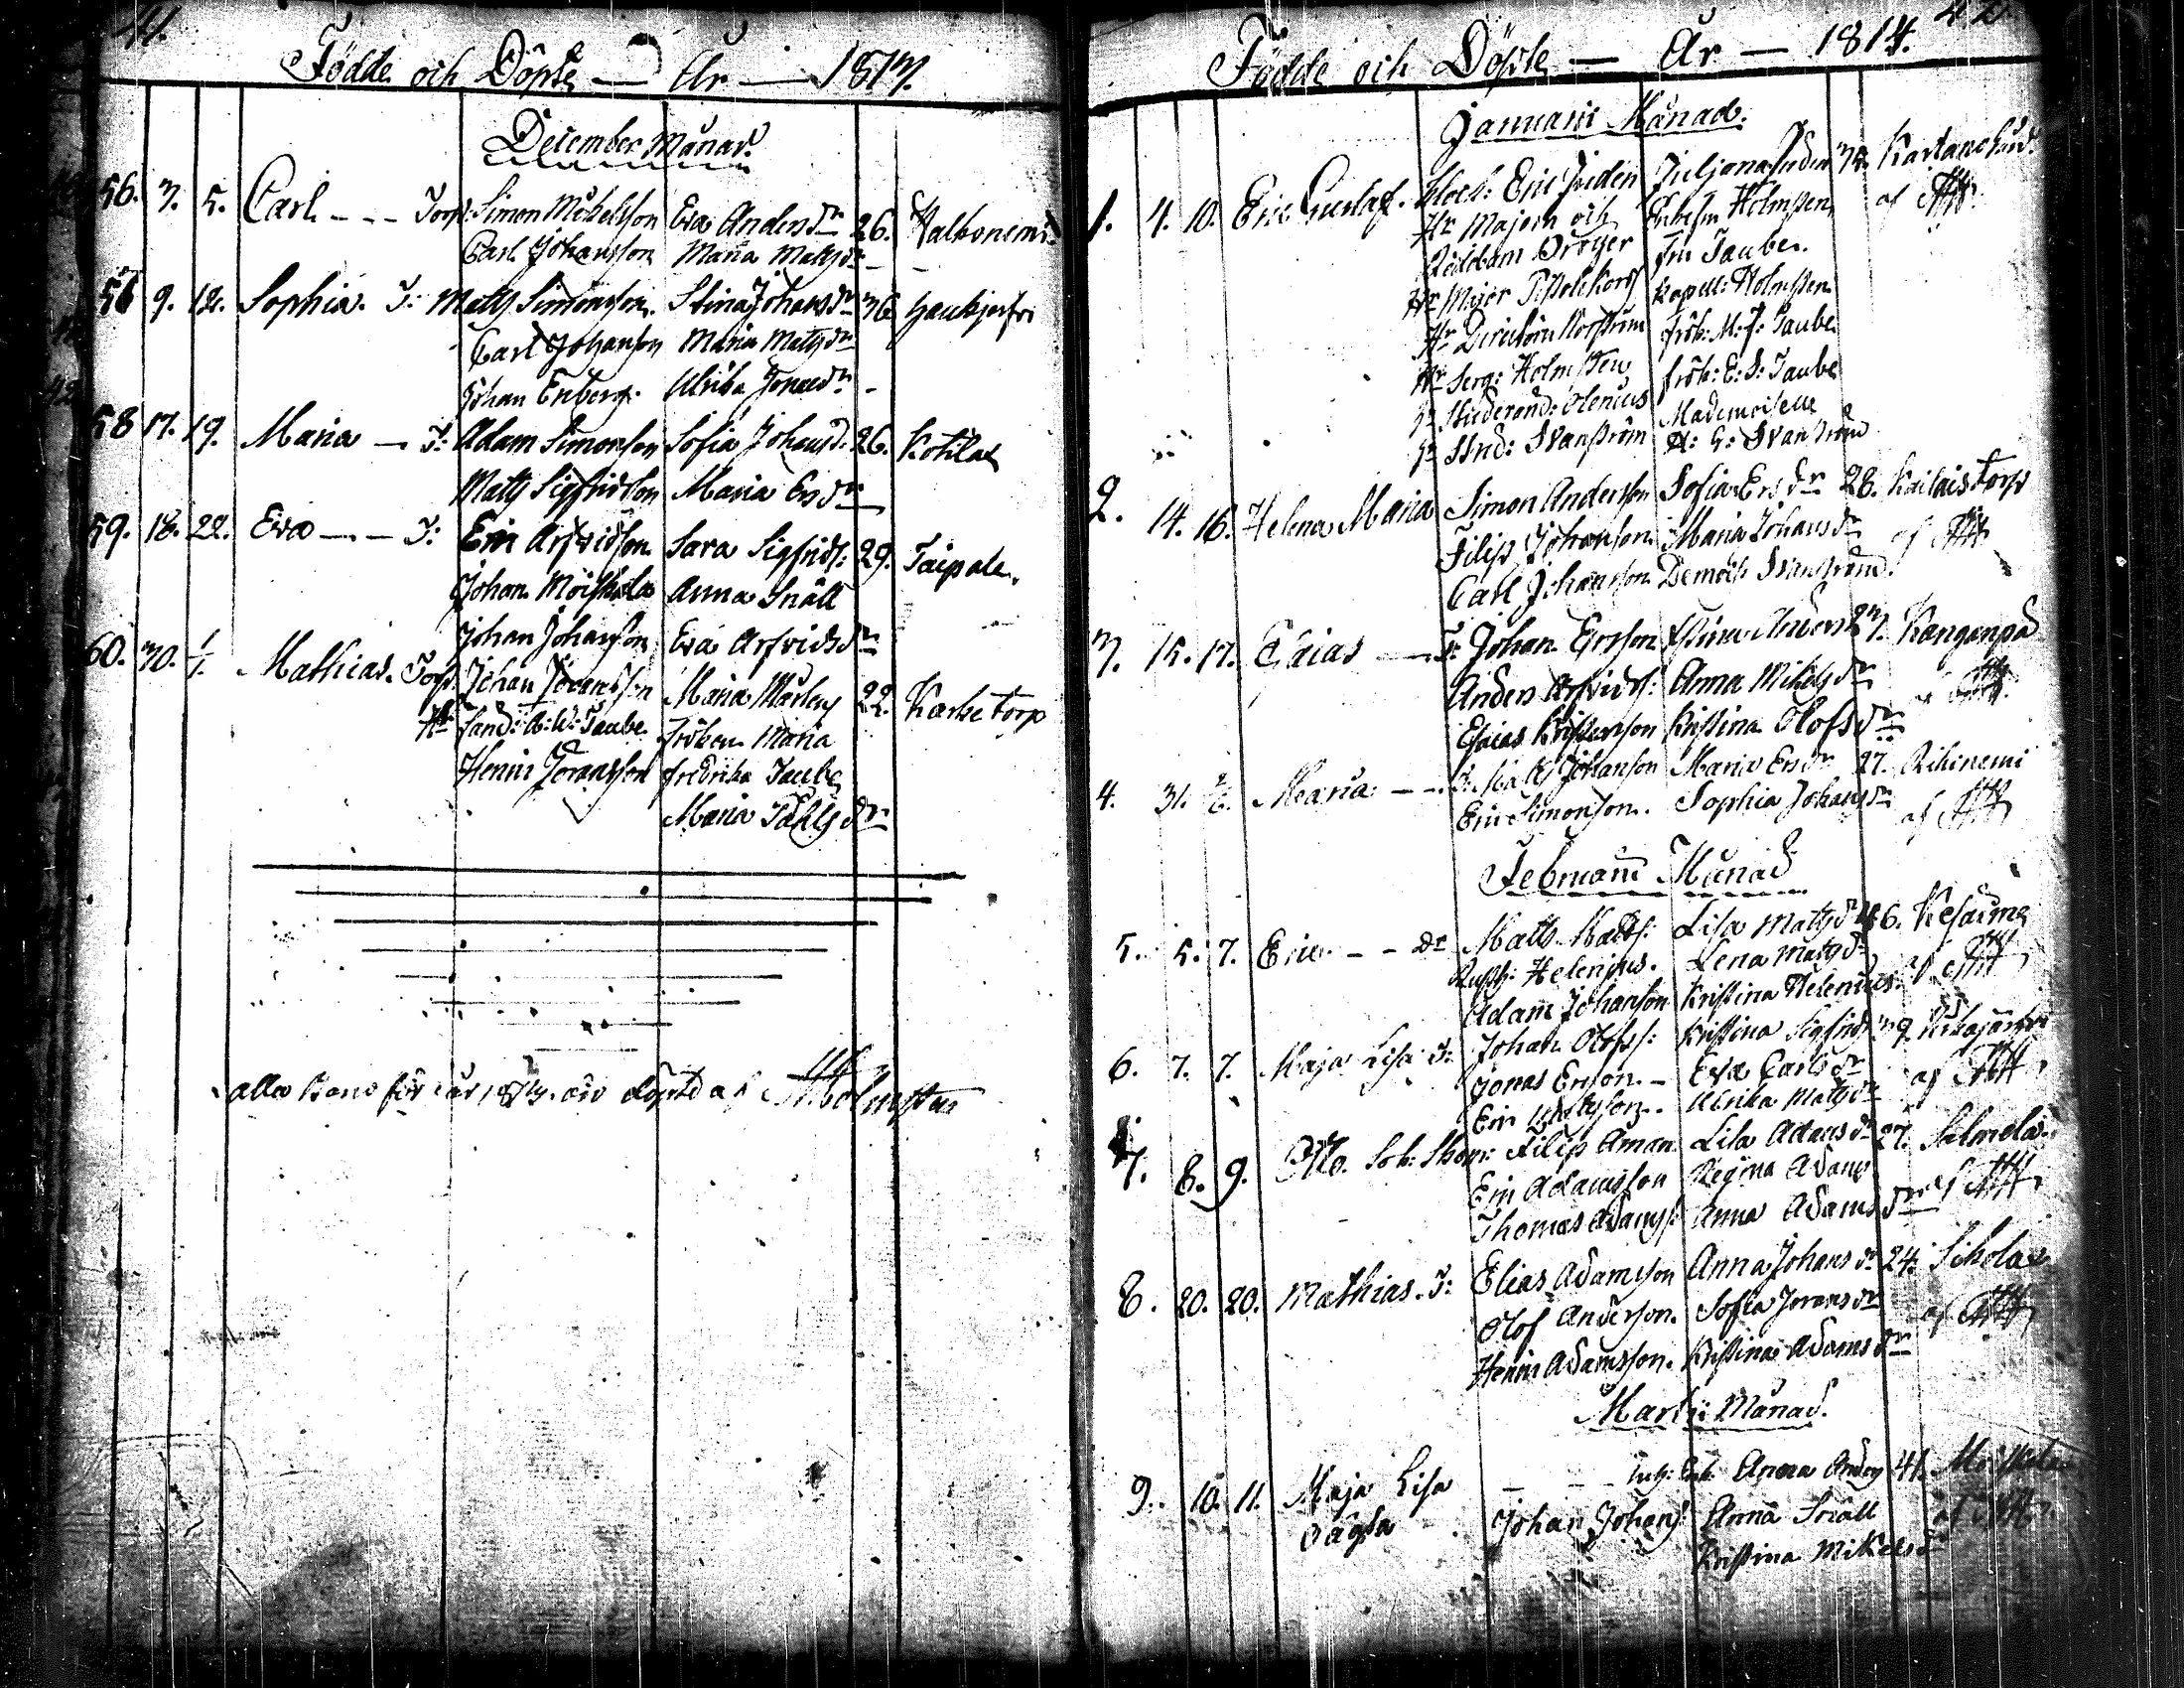 41.
Födde och Döpte — År — 1813.
December Månad.
56. 3. 5. Carl - - - Torp: Simon Mickelsson Eva Anders dr 26. Valkonemi
Carl Johansson Maria Matts dr
56 9. 12. Sophia. T: Matts Simonsson. Stina Johans dr 36 Haukjerfvi
Carl Johanson Maria Matts dr
Johan Enberg. Ulrika Jonae dr
58 17. 19. Maria — T: Adam Simonson Sofia Johans d. 26. Kotila
Matts Sigfridson Maria Ers dr
59. 18. 22. Eva — - — T: Eric Arfvidson Sara Sigfrids: 29. Taipale.
Johan Möiskala Anna Snäll
Johan Johanson Eva Arfvids dr
60. 30. 1/1. Mathias. Torp. Johan Joransson Maria 22. Karhe torp
Hr Fand: A: W: Taube Fröken Maria
Henric Joransson Fredrika Taube
Maria Påhls dr
alla Barn för år 1813. äro döpta af Holmsten
42.
Födde och Döpte — År — 1814.
Januarii Månad.
1. 4. 10. Eric Gustaf. Klock: Eric Juliana 32. Kartanolund.
Hr Majorn och Enkefru Holmsten af AH
Riddaren Dröijer Fru Taube.
Hr Major Pistolekors Kapell: Holmsten
Hr Directörn Norström Frök: M: F: Taube
Hr Serg: Holmsten Frök: E: S: Taube
Hr Studerand: Olenius Mademoiselle
Hr Stud: Svanström A: G: Svanström
2. 14. 16. Helena Maria Simon Anderson Sofia Ers dr 28. Kailais torp
Filip Johanson Maria Johans dr af AH
Carl Johansson Demois Svanström
3. 15. 17. Esaias — T: Johan Ersson Stina Anders 23. Kangenpä
Anders Arfvids: Anna Mikels dr af AH
Esaias Kristerson Kristina Olofs dr
4. 31. 2/2. Maria - - T. Matts Johanson Maria Ers dr 27. Riihinemi
Eric Simonson. Sophia Johans dr af AH
Februarii Månad
5. 5. 7. Eric - - dr Matts Matts: Lisa Matts dr 46. Kesäima
Rusth: Helenius. Lena Matts dr af AH
Adam Johanson Kristina Helenius
6. 7. 7. Maja Lisa T: Johan Olofss: Kristina Sigfrids 39.
Jonas Erson. — Eva Carls dr af AH
Eric Mattsson. Ulrika Matts dr
7. 8. 9. Otto. Sok: Skom: Filip Aman Lisa Adams dr 27. Salmela
Eric Adamsson Regina Adams af AH
Thomas Adams: Anna Adams dr
8. 20. 20. Mathias. T: Elias Adamson Anna Johans dr 24. Sikola
Olof Anderson. Sofia Jorans dr af AH
Henric Adamsson. Kristina Adams dr
Martii Månad.
9. 10. 11. Maja Lisa Anna Anders 41.
oägta Johan Johans: Anna Snäll af AH
Kristina Mikels d